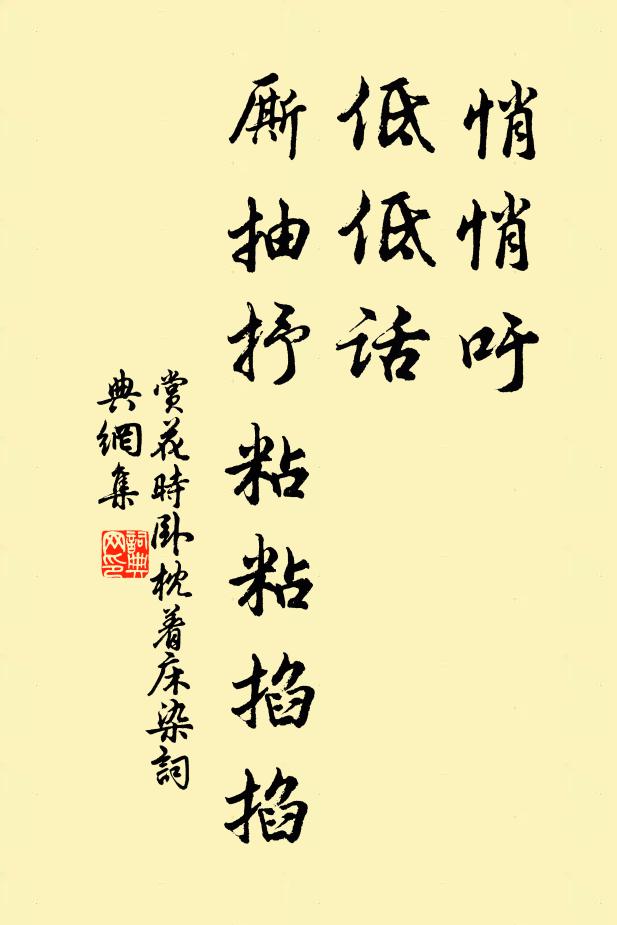 悄悄吁
低低话
厮抽抒粘粘掐掐
赏花時卧枕着床染詞
典網集
詞典网印